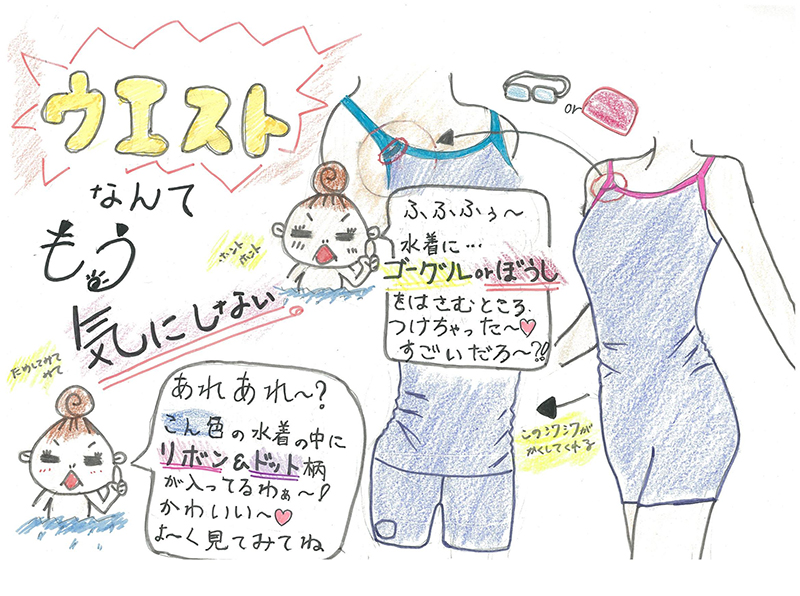 ウエスト
なんて
もう
気にしない
ホント
ホント
or
ふふふぅ〜
水着に…
ゴーグルorぼうし
をはさむところ
つけちゃった〜♡
すごいだろ〜?!
ためしてみて
みて
あれあれ〜?
こん色の水着の中に
リボン&ドット柄
が入ってるわぁ〜!
かわいい〜♡
よ〜く見てみてね
このシワシワが
かくしてくれる